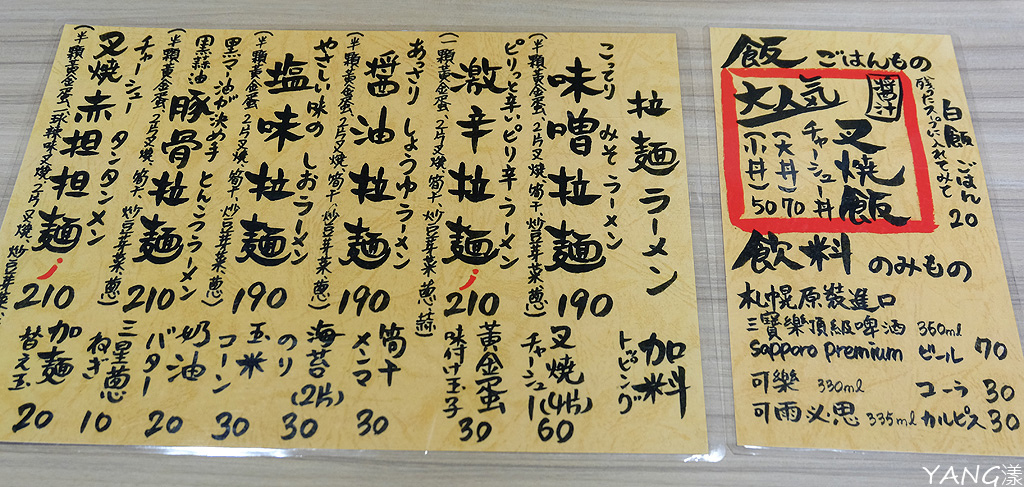 拉麵ラーメン
こってり みそラーメン
味噌拉麵 190
(半顆黃金蛋、2片叉燒、筍干、炒豆芽菜、蔥)
ピリっと辛いピリ辛ラーメン
激辛拉麵 210
(一顆黃金蛋、2片叉燒、筍干、炒豆芽菜、蔥、蒜)
あっさり しょうゆラーメン
醤油拉麵 190
(半顆黃金蛋、2片叉燒、筍干、炒豆芽菜、蔥)
やさしい味の しおラーメン
塩味拉麵 190
(半顆黃金蛋、2片叉燒、筍干、炒豆芽菜、蔥)
黒マー油が決め手 とんこつラーメン
黑蒜油 豚骨拉麵 210
(半顆黃金蛋、2片叉燒、筍干、炒豆芽菜、蔥)
チャーシュー タンタンメン
叉燒 赤担担麵 210
加料 トッピング
叉燒 チャーシュー(4片) 60
黃金蛋 味付け玉子 30
筍干 メンマ 30
海苔(2片) のり 30
玉米 コーン 30
奶油 バター 20
三星蔥 ねぎ 10
加麵 替え玉 20
飯 ごはんもの
白飯 ごはん 20
残ったスープに入れてみて
大人気
醬汁
叉燒飯
チャーシュー丼
(大丼) 70
(小丼) 50
飲料 のみもの
札幌原裝進口
三寶樂頂級啤酒 350ml
Sapporo Premium ビール 70
可樂 330ml コーラ 30
可爾必思 335ml カルピス 30
YANG漾